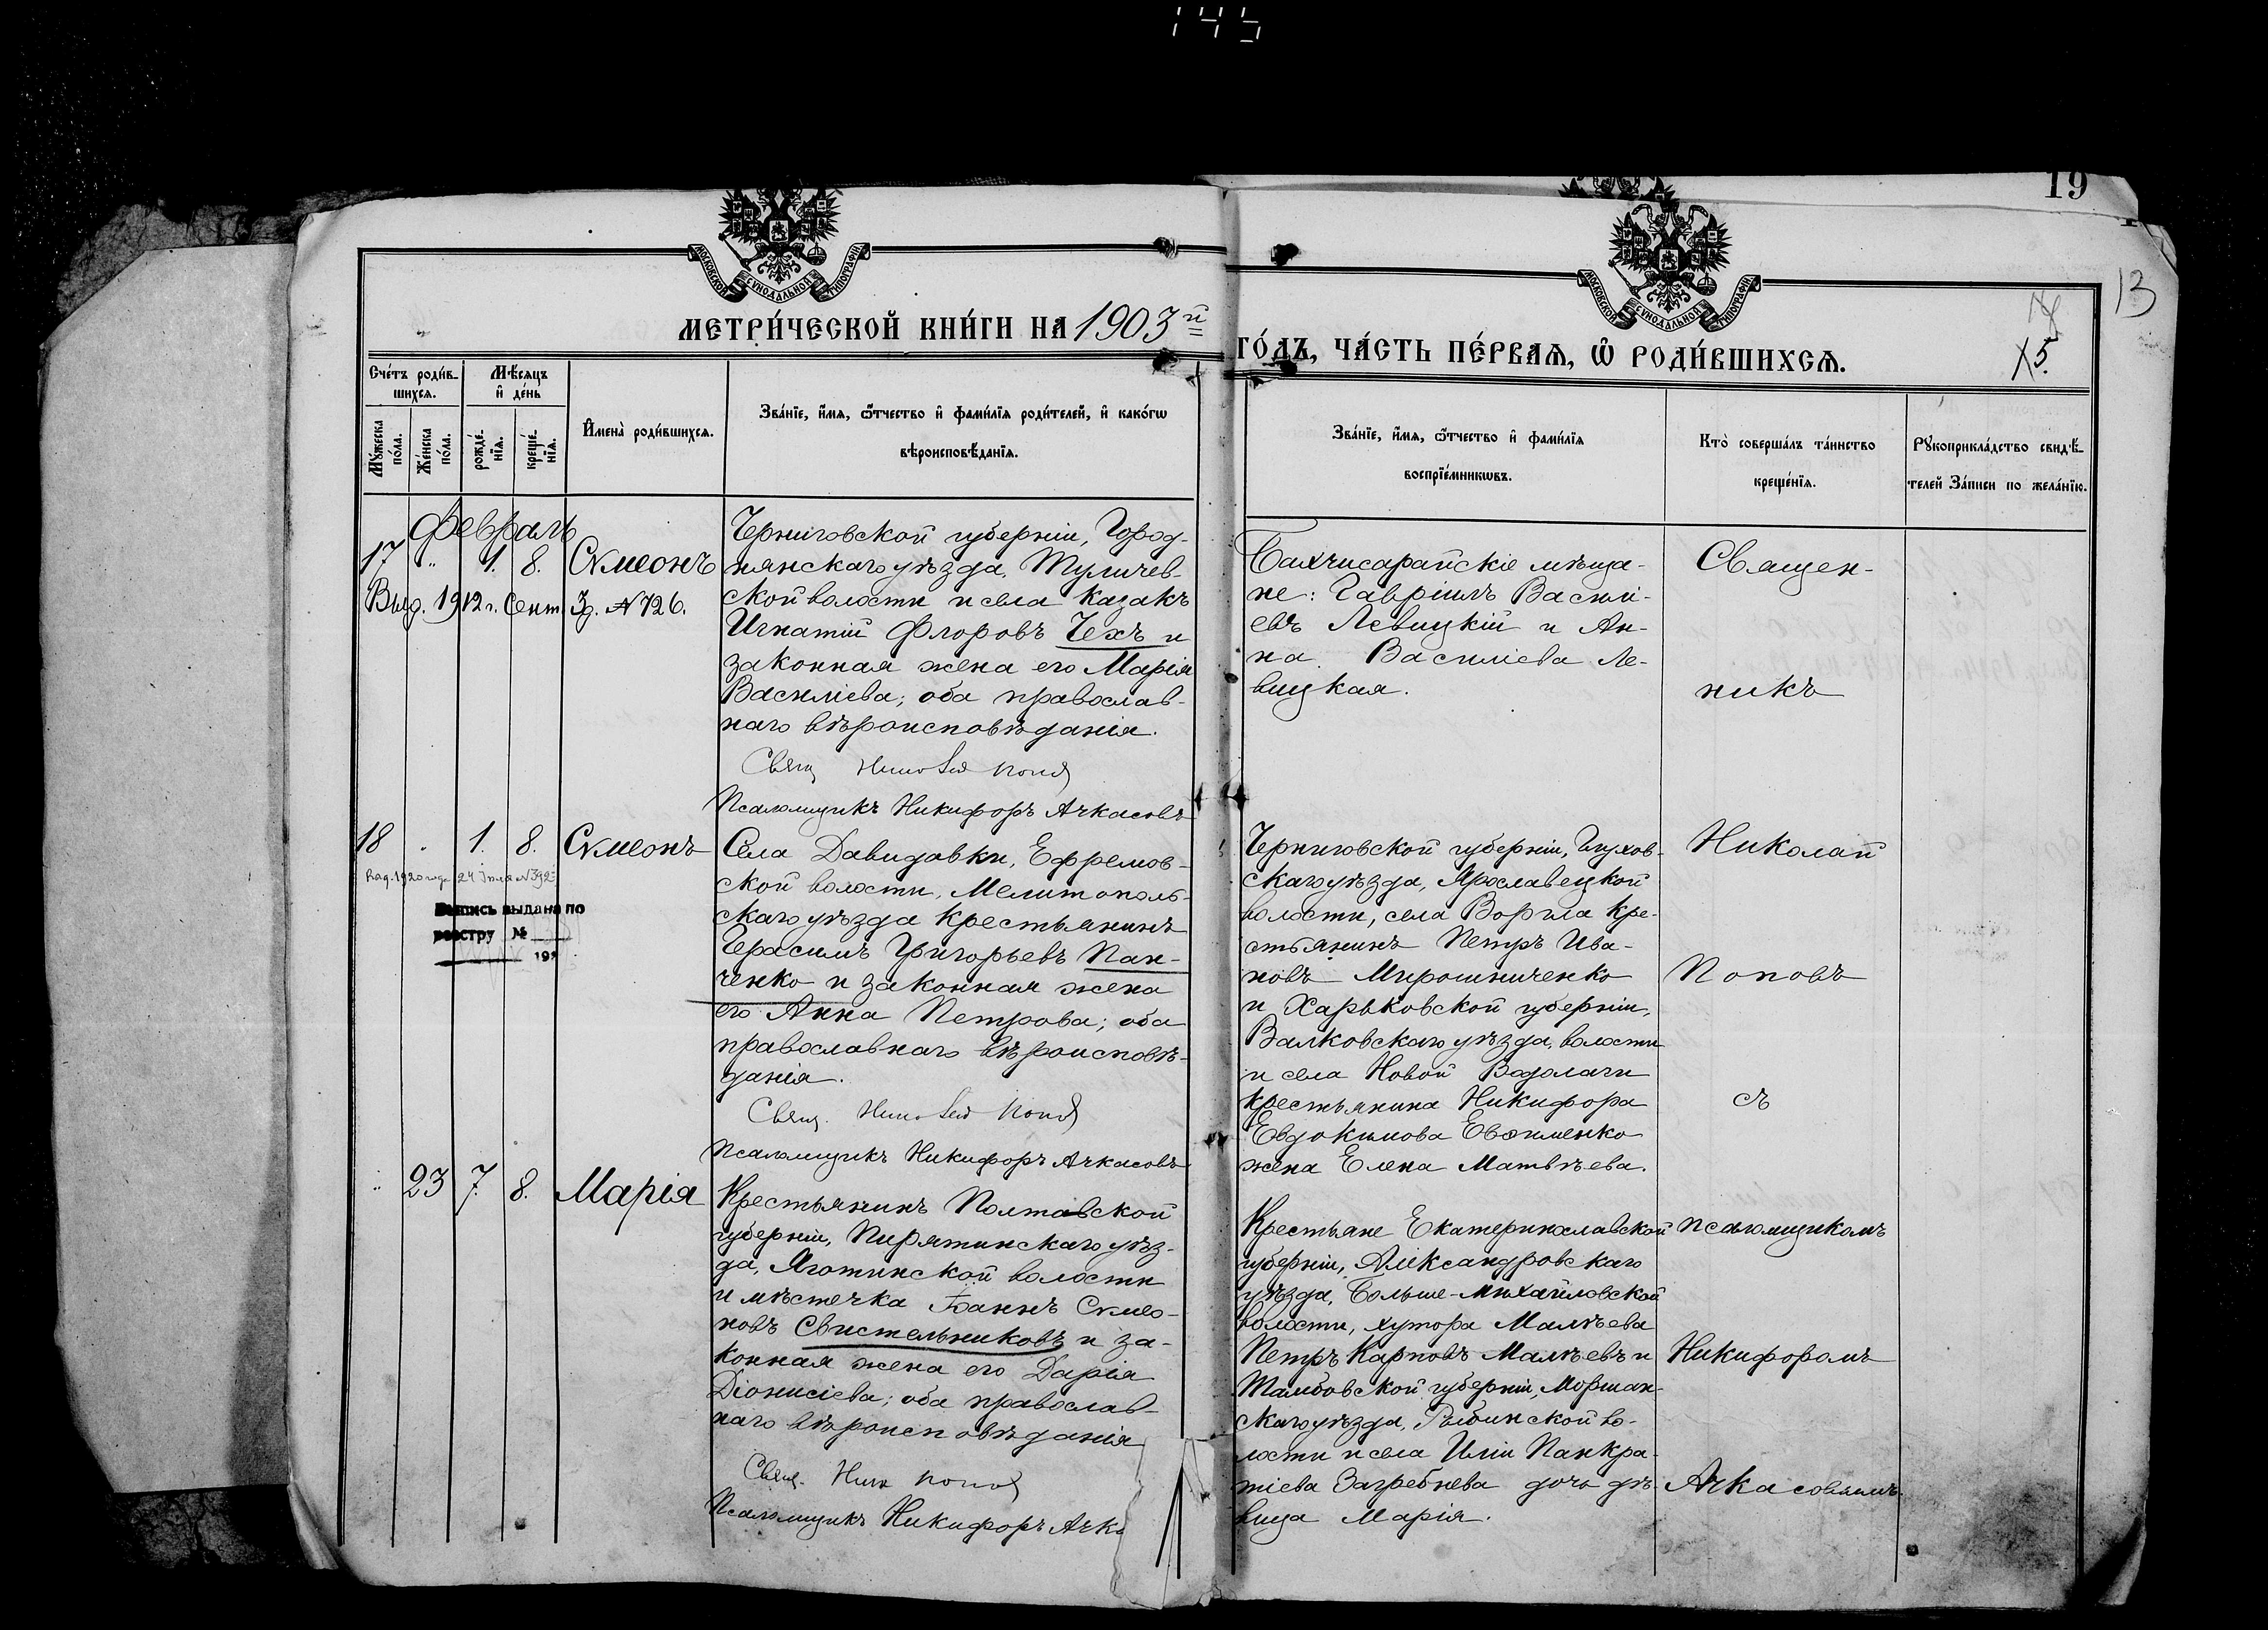 145
19
13
15.
МОСКОВСКОЙ СѴНОДАЛЬНОЙ ТИПОГРАФІИ
МОСКОВСКОЙ СѴНОДАЛЬНОЙ ТИПОГРАФІИ
МЕТРИ́ЧЕСКОЙ КНИ́ГИ НА 1903й
ГО́ДЪ, ЧА́СТЬ ПЕ́РВАѦ, Ѽ РОДИ́ВШИХСѦ.
Сче́тъ роди́в-
шихсѧ.
Мѣ́сѧцъ
и҆ де́нь
Мꙋ́жеска
по́ла.
Же́нска
по́ла.
рожде́-
нїѧ.
креще́-
нїѧ.
И҆мена̀ роди́вшихсѧ.
Зва́нїе, и҆́мѧ, ѻ҆́тчество и҆ фами́лїѧ роди́телей, и҆ како́гѡ
вѣроисповѣ́данїѧ.
Зва́нїе, и҆́мѧ, ѻ҆́тчество и҆ фами́лїѧ
воспрїе́мникѡвъ.
Кто̀ соверша́лъ та́инство
креще́нїѧ.
Рꙋкоприкла́дство свидѣ́-
телей За́писи по жела́нїю.
Февраль
17 " 1. 8. Сѵмеонъ
Выд. 1912 г. Сент. 3д. № 726.
Черниговской губерніи, Город-
нянскаго уѣзда, Тупичев-
ской волости и села казакъ
Игнатій Флоровъ Чехъ и
законная жена его Марія
Василіева; оба православ-
наго вѣроисповѣданія.
Свящ. Николай Поповъ
Псаломщикъ Никифоръ Ачкасовъ
Бахчисарайскіе мѣща-
не: Гавріилъ Василі-
евъ Левицкій и Ан-
на Василіева Ле-
вицкая.
Священ-
никъ
18 " 1. 8. Сѵмеонъ
Выд. 1920 года 24 Іюля № 392
Выпись выдана по
реестру №
191
Села Давидовки, Ефремов-
ской волости, Мелитополь-
скаго уѣзда крестьянинъ
Герасимъ Григорьевъ Пан-
ченко и законная жена
его Анна Петрова; оба
православнаго вѣроисповѣ-
данія.
Свящ. Николай Поповъ
Псаломщикъ Никифоръ Ачкасовъ
Черниговской губерніи, Глухов-
скаго уѣзда, Ярославецкой
волости, села Воргла кре-
стьянинъ Петръ Ива-
новъ Мирошниченко
и Харьковской губерніи,
Валковскаго уѣзда, волости
и села Новой Водолаги
крестьянина Никифора
Евдокимова Евѳименко
жена Елена Матвѣева.
Николай
Поповъ
съ
" 23 7. 8. Марія
Крестьянинъ Полтавской
губерніи, Пирятинскаго уѣз-
да, Яготинской волости
и мѣстечка Іоаннъ Сѵмео-
новъ Свистельниковъ и за-
конная жена его Дарія
Діонисіева; оба православ-
наго вѣроисповѣданія
Свящ. Ник Поповъ
Псаломщикъ Никифоръ Ачка
Крестьяне Екатеринославской
губерніи, Александровскаго
уѣзда, Больше-Михайловской
волости, хутора Малѣева
Петръ Карповъ Малѣевъ и
Тамбовской губерніи, Моршан-
скаго уѣзда, Рыбинской во-
лости и села Иліи Панкра-
тіева Загребнева дочь дѣ-
вица Марія.
псаломщикомъ
Никифоромъ
Ачкасовымъ.